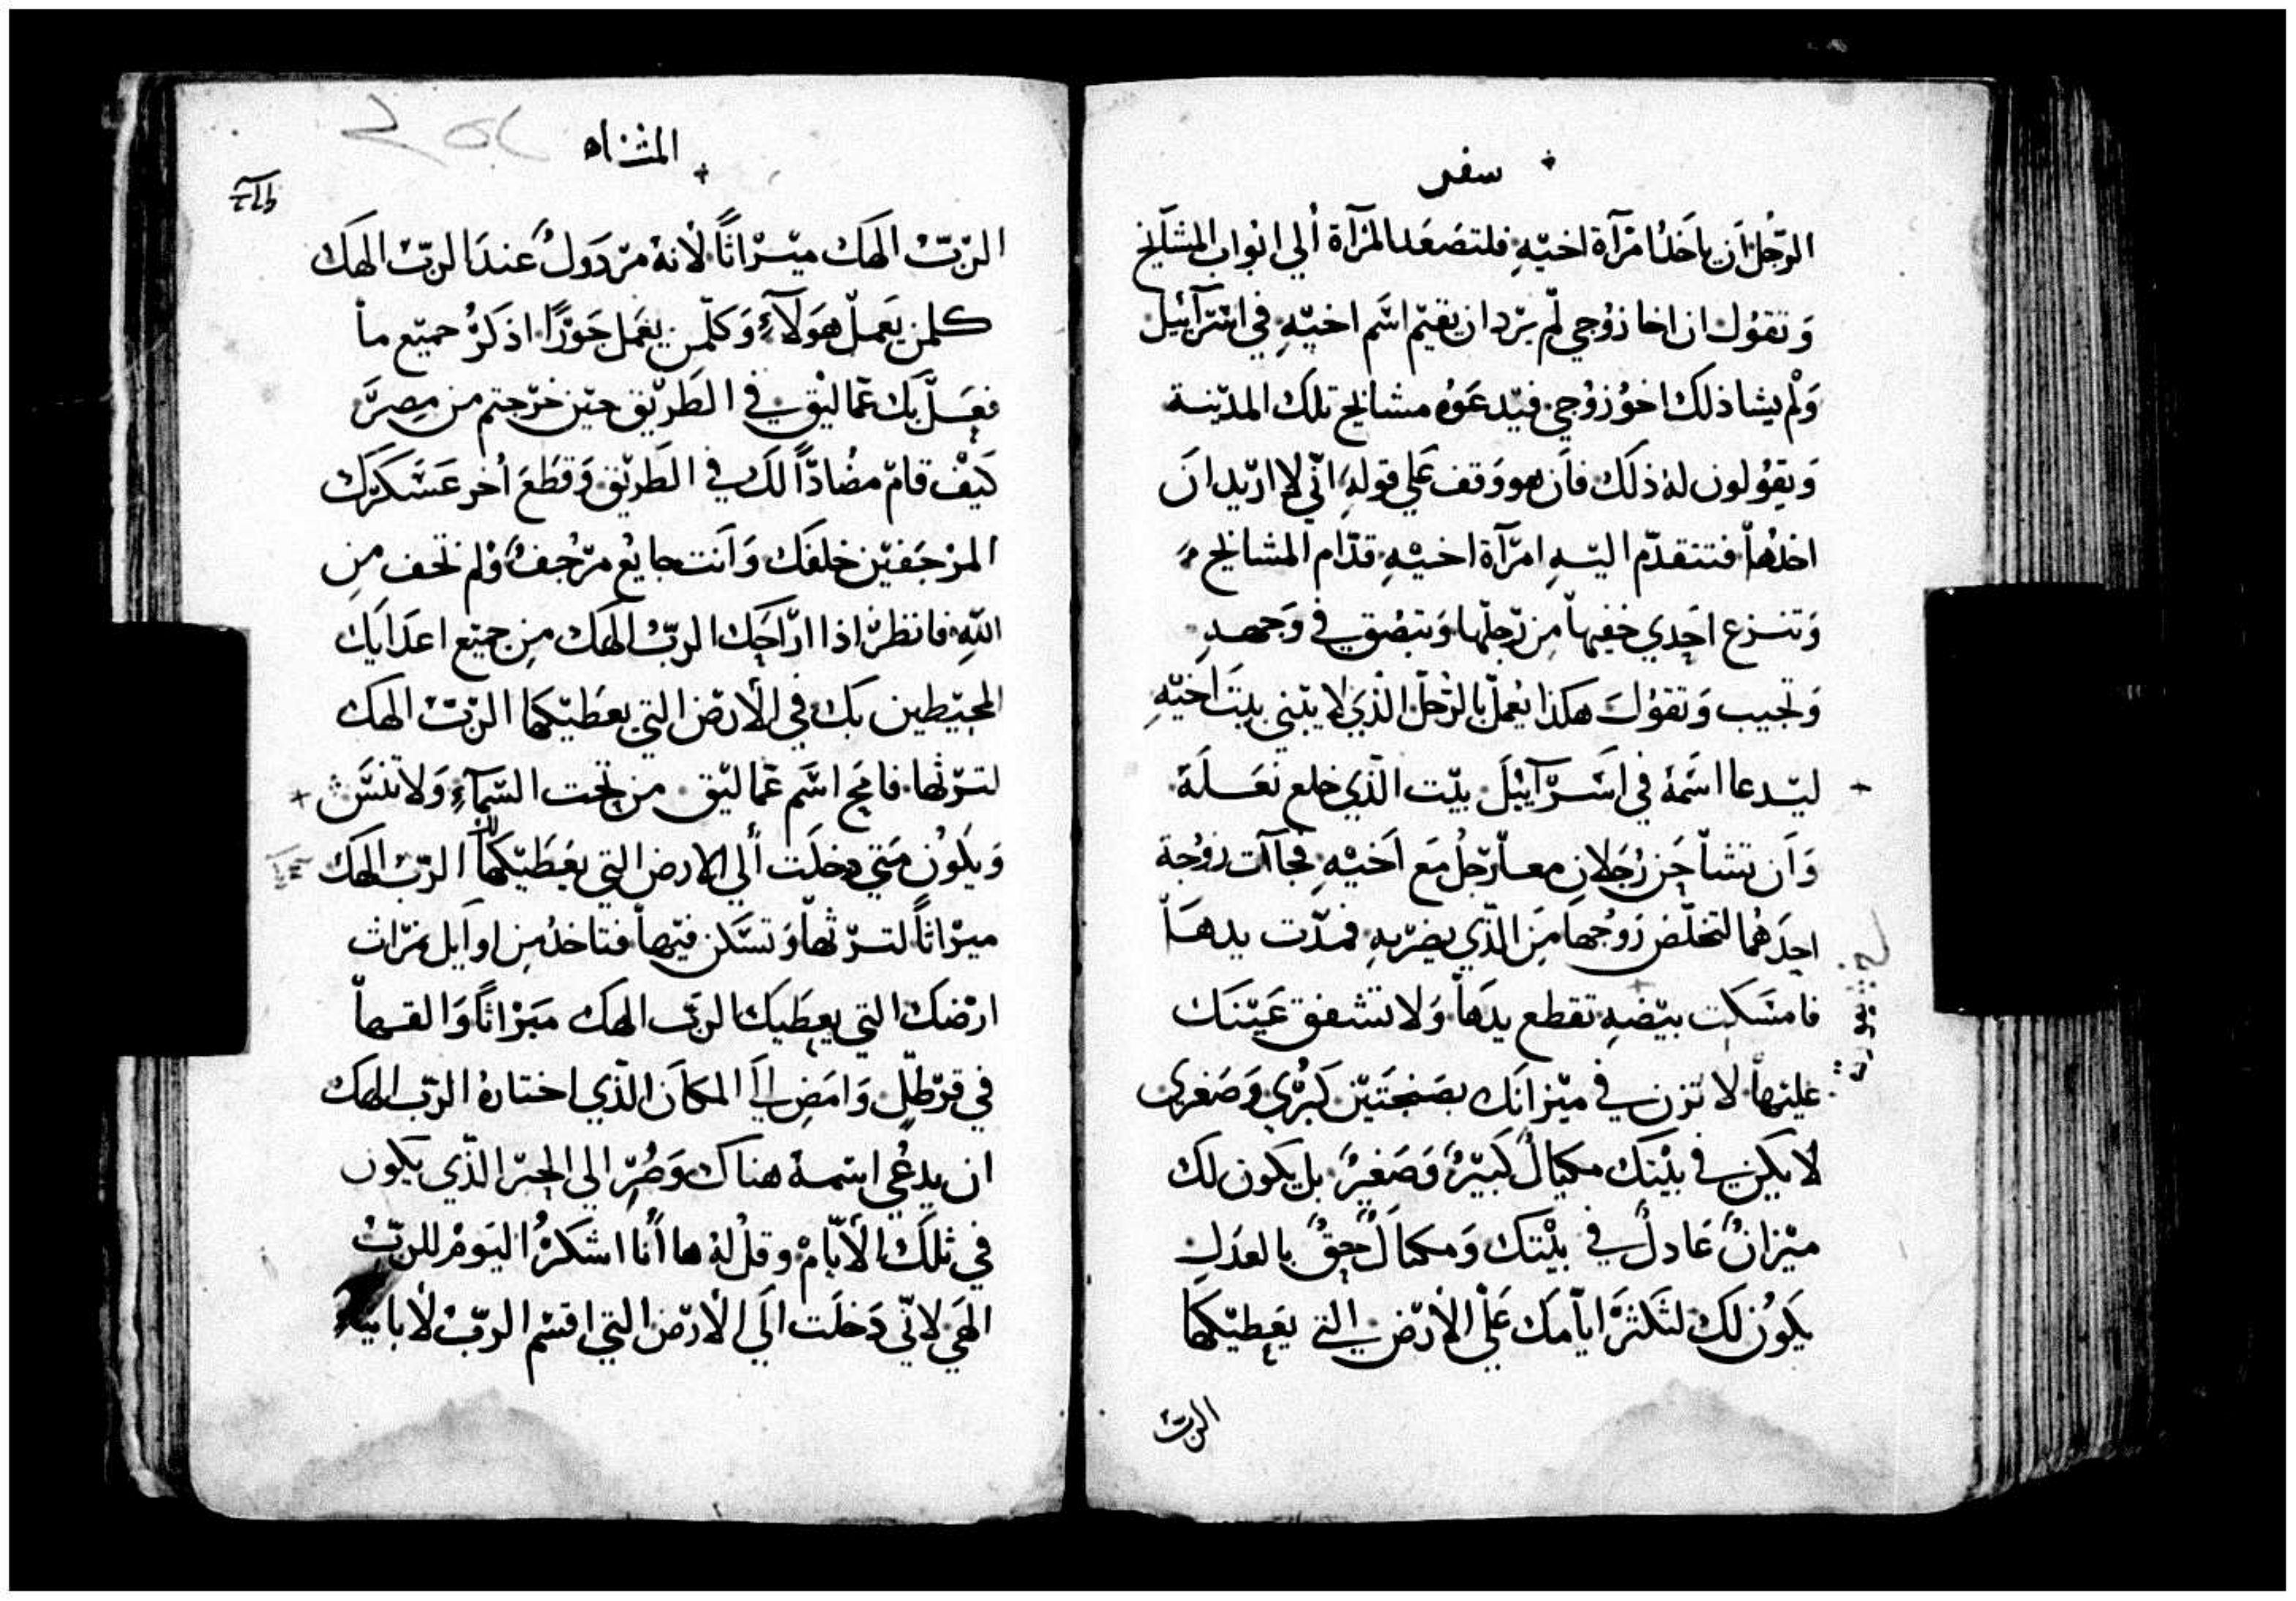 سفر
الرّجُل اَن ياخذ امرَآة اخيّهِ فلتصَعَد المرَآة اُلي ابوَاب المشَايخ
وَ تقوُل ان اخا زوُجي لّم يرّد ان يقيّم اسَّم اخيّهِ في اسَّرآئيل
وَلْم يشا ذلك اخوُ زوُجي فيّدعَوُه مشايخ تلك المدّينة
وَ يقوُلون لهُ ذلَك فاَن هو وَقف عَلي قولهِ انّي لا ارّيد انَ
اخذهاْ فتنقدّم اليّهِ امرّآة اخيْهِ قدّام المشايخ
وَ تنزع احِدي خفيهاْ مِن رّجلّها وَ تبصُق في وَجههِ
وَ تجيب وَ تقوُلَ هكذا يُعملّ بالرّجُلّ الذّي لا يبّني بيتَ اخيّهِ
ليّدعا اسَّمهُ في اسَّرّآييْلَ بيّت الّذي خلع نعَلَهَ
وَاَن تشاْجَر رُجَلانِ معاً رّجُل مَع اَخيْهِ فجاآت زوُجة
احِدَهُما لتخلّص زوُجها مِنَ الذّي يضرّبهِ فمدّت يدهَاْ
فامسَّكِت بيّضهِ تقطع يدَهاْ وَلا تشفق عَيّنَك
عليَهاْ لا تزن في ميّزانَك بصَنجَتَيّن كبرُّي وَصَغري
لا يكِن في بيْتك مكيالٌ كَبيّرٌ وَصَغيرٌ بل يكَون لك
ميّزانٌ عَادلٌ في بيْتك وَ مكيالٌ حِقٌ بالعدَل
يكَوُن لكَ لتَكثرَ اياّمَك عَلْي الاَرّض التي يعَطيّكها
الربّ
المثناه
الربّ الهَك ميّرْاثاً لاْنهُ مرّدَولٌ عندَ الربّ الهَك
كلمن يعَملّ هوَلآءِ وَكلّمن يعَمل جَوّرًا اذكرُّ حميّع ماْ
فعَلّ بك عَماليْق في الطَريّق حيّن خرّجتم من مِصرَّ
كيَفْ قامّ مضُادّاً لك في الطَريّق وَ قطَعَ اُخر عَسَّكرَك
المرْجَفيّن خلفَك وَ اَنت جايعٌ مرّجُفٌ وْلم تخف مِن
اللّهِ فانظرّ اذا ارّاحَك الربّ الهَك مِن جميّع اعدَايَك
المحيّطين بَك في الاَرّض التي يعَطيّكها الربّ الهك
لترّثها فامحِ اسَّم عَماليّق من تحِت السَّمآءِ وَلا تنسَّ
وَ يكَوُن مَتي دخلَت اُلي الارض التي يعَطيّكها الربّ الهَك
ميرْاثاً لترّثهاْ وَ تسَّكن فيّهاْ فتاخذ مِن اوَايل ثمرّاث
ارْضك التي يعِطيَك الربّ الهك ميَرْاثاً وَالقهاْ
في قرّطلّ وَامَضِ اليَ المكاَن الذّي اختارهُ الربّ الهك
ان يدعُي اسّمهُ هناك وَصُرّ الي الحِبّر الذّي يكَون
في تلكَ الاْيّامْ وقلْ لهُ ها اُنا اشكرُ اليَومْ للربّ
الهَي لانّي دَخلَت الَي الاَرّض التي اقسْم الربّ لاْبايْنا